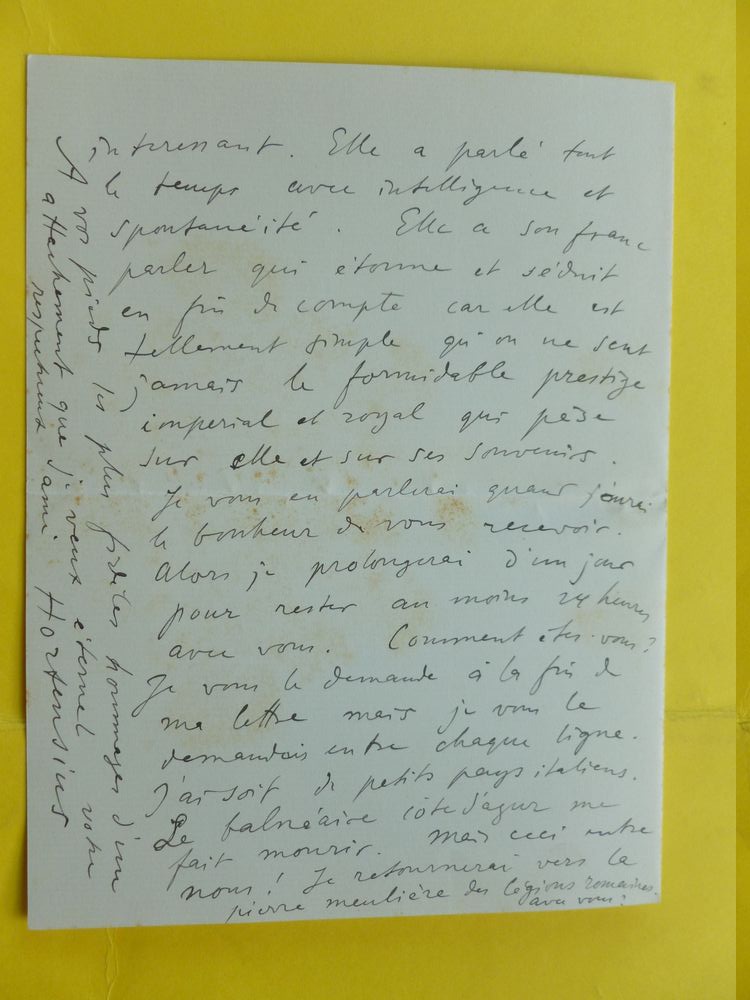 interessant. Elle a parlé tout
le temps avec intelligence et
spontanéité. Elle a son franc
parler qui étonne et séduit
en fin de compte car elle est
tellement simple qu'on ne sent
jamais le formidable prestige
imperial et royal qui pèse
sur elle et sur ses souvenirs.
Je vous en parlerai quand j'aurai
le bonheur de vous recevoir.
Alors je prolongerai d'un jour
pour rester au moins 24 heures
avec vous. Comment êtes-vous?
Je vous le demande à la fin de
ma lettre mais je vous le
demandais entre chaque ligne.
J'ai soif de petits pays italiens.
Le balnéaire côte d'azur me
fait mourir. Mais ceci entre
nous! Je retournerai vers la
pierre meulière des légions romaines
avec vous!
A vos pieds les plus fidèles hommages d'un
attachement que je veux éternel votre
respectueux ami Hortensius